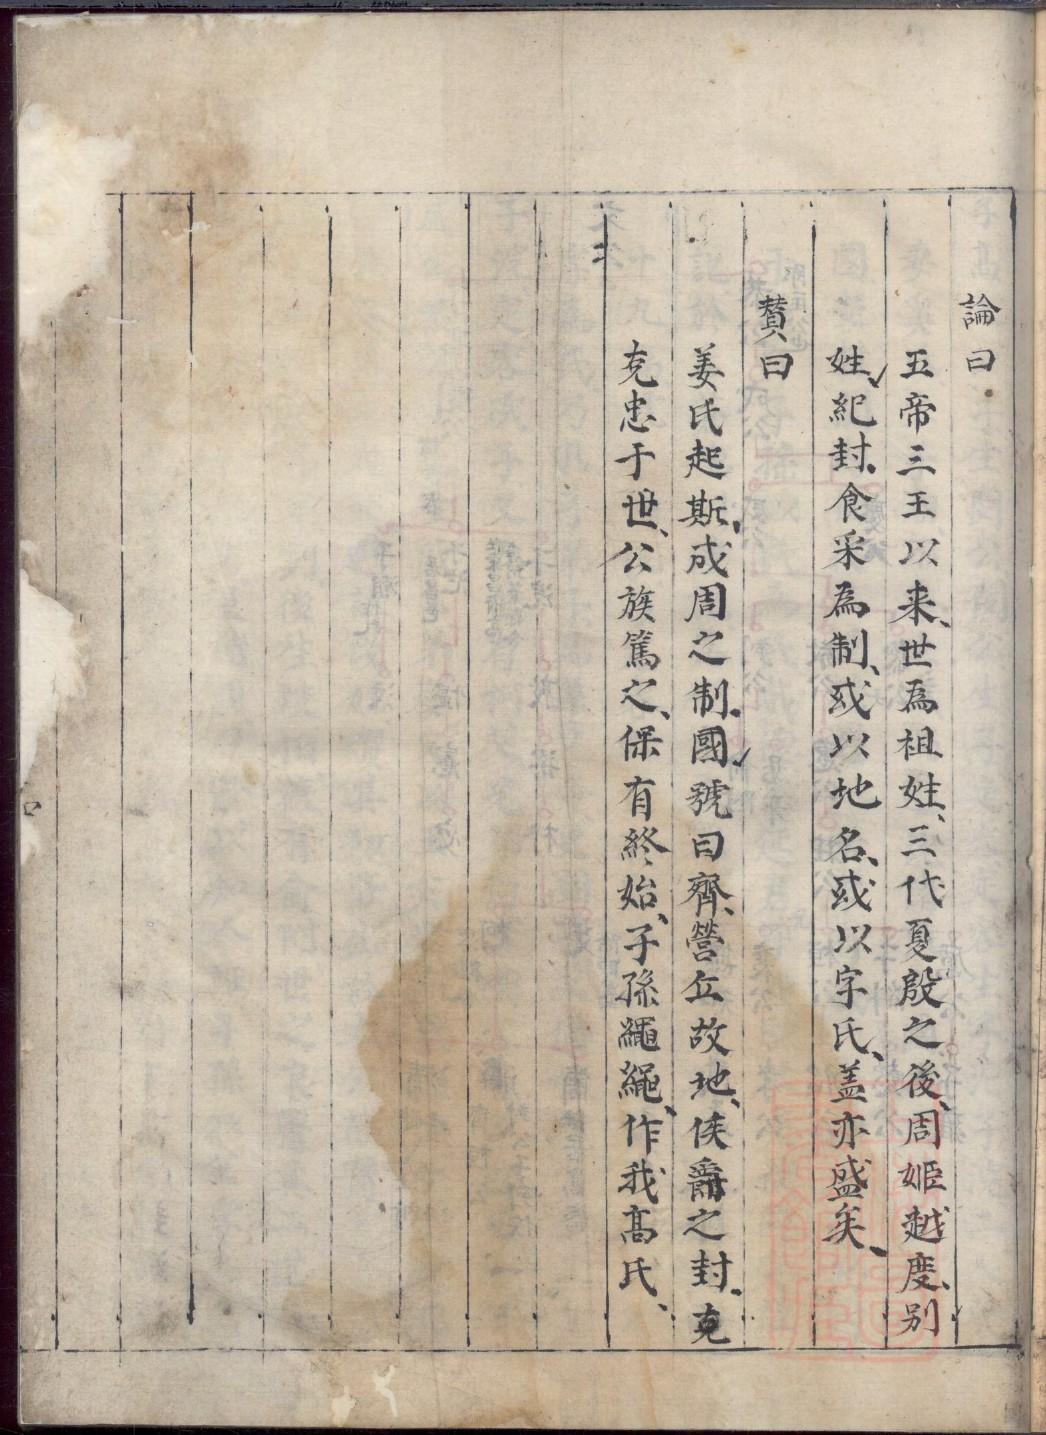 論曰
五帝三王以来、世為祖姓、三代夏殷之後、周姬越度、别
姓、紀封、食采為制、或以地名、或以字氏、盖亦盛矣、
賛曰
姜氏起斯、成周之制、國、號曰齊、營丘故地、侯爵之封、克
克忠于世、公族篤之、保有終始、子孫繩繩、作我髙氏、